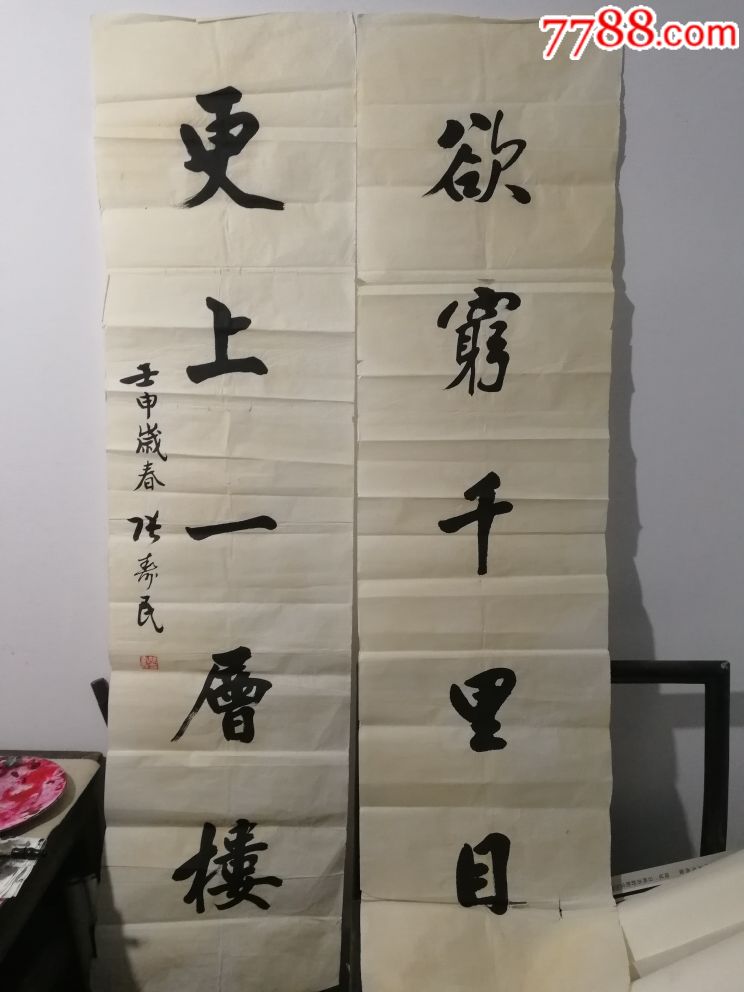 7788.com
欲窮千里目
更上一層樓
壬申歲春 張壽民